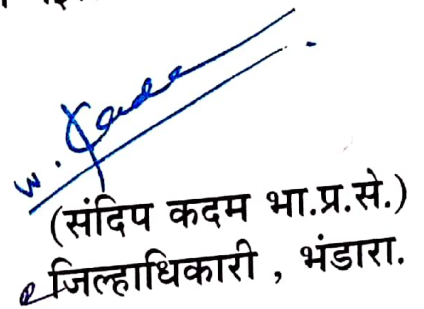 (संदिप कदम भा.प्र.से.)
जिल्हाधिकारी , भंडारा.